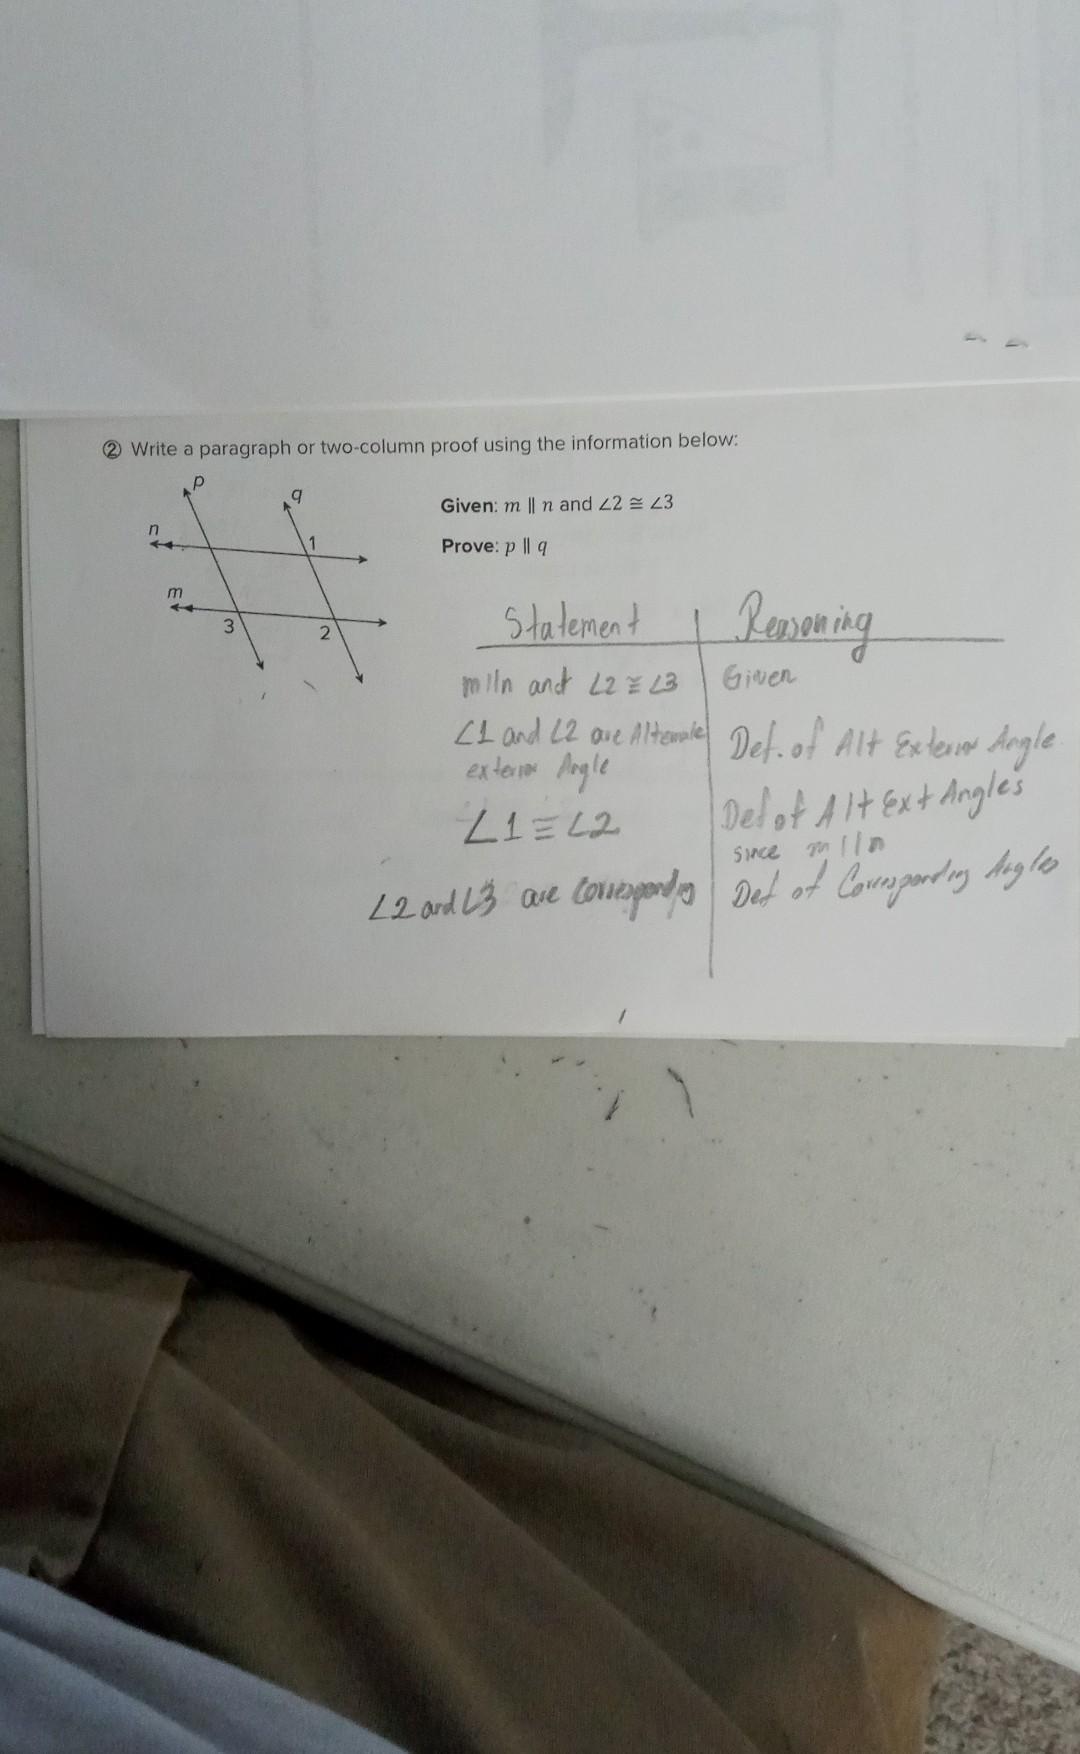 ② Write a paragraph or two-column proof using the information below:
p
q
n
1
m
3
2
Given: m ∥ n and ∠2 ≅ ∠3
Prove: p ∥ q
Statement | Reasoning
m∥n and ∠2 ≅ ∠3 | Given
∠1 and ∠2 are Alternate | Def. of Alt Exterior Angle
exterior Angle
∠1 ≅ ∠2 | Def of Alt Ext Angles
since m∥n
∠2 and ∠3 are Corresponding | Def of Corresponding Angles